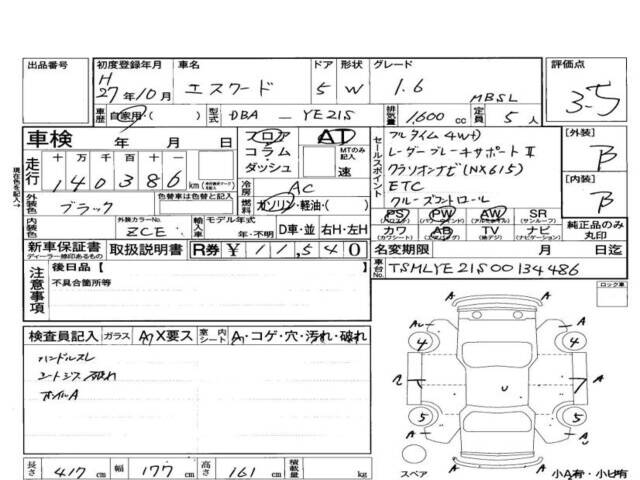 出品番号
初度登録年月 車名 ドア 形状 グレード 評価点
H 27年10月 エスクード 5 W 1.6 3.5
MBSL
車歴 自家用・( ) 型式 DBA - YE21S 排気量 1,600 cc 定員 5人
車検 年 月 日
フロア AT
コラム・ MTのみ記入
ダッシュ 速
セールスポイント
フルタイム4WD
レーダーブレーキサポートⅡ
クラリオンナビ(NX615)
ETC
クルーズコントロール
[外装] B
[内装] B
現在色を記入→
走行 十 万 千 百 十 一
140386 km
冷房 AC
外装色 ブラック 色替車は色替と記入
燃料 ガソリン・軽油・( )
PS PW AW SR
(パワステ) (パワーウィンド) (アルミホイル) (サンルーフ)
カワ AB TV ナビ
(カワシート) (エアバッグ) (地デジ) (ナビゲーション)
純正品のみ丸印
内装色 外装カラーNo. ZCE 輸入車 モデル年式 年・不明 D車・並 右H・左H
新車保証書 取扱説明書 R券 ¥11,540
ディーラー捺印あるもの
名変期限 月 日迄
車台No. TSMLYE21S00134486
注意事項
後日品【
不具合箇所等
ロック車
検査員記入 ガラス A7X要ス 室内シート A・コゲ・穴・汚れ・破れ
ハンドルスレ
シートジス 破れ
ホイルA
A
AU 4 4 A
A A
U
5 5
A A
A
スペア 小A有・小U有
長さ 417 cm 幅 177 cm 高さ 161 cm 積載量 kg